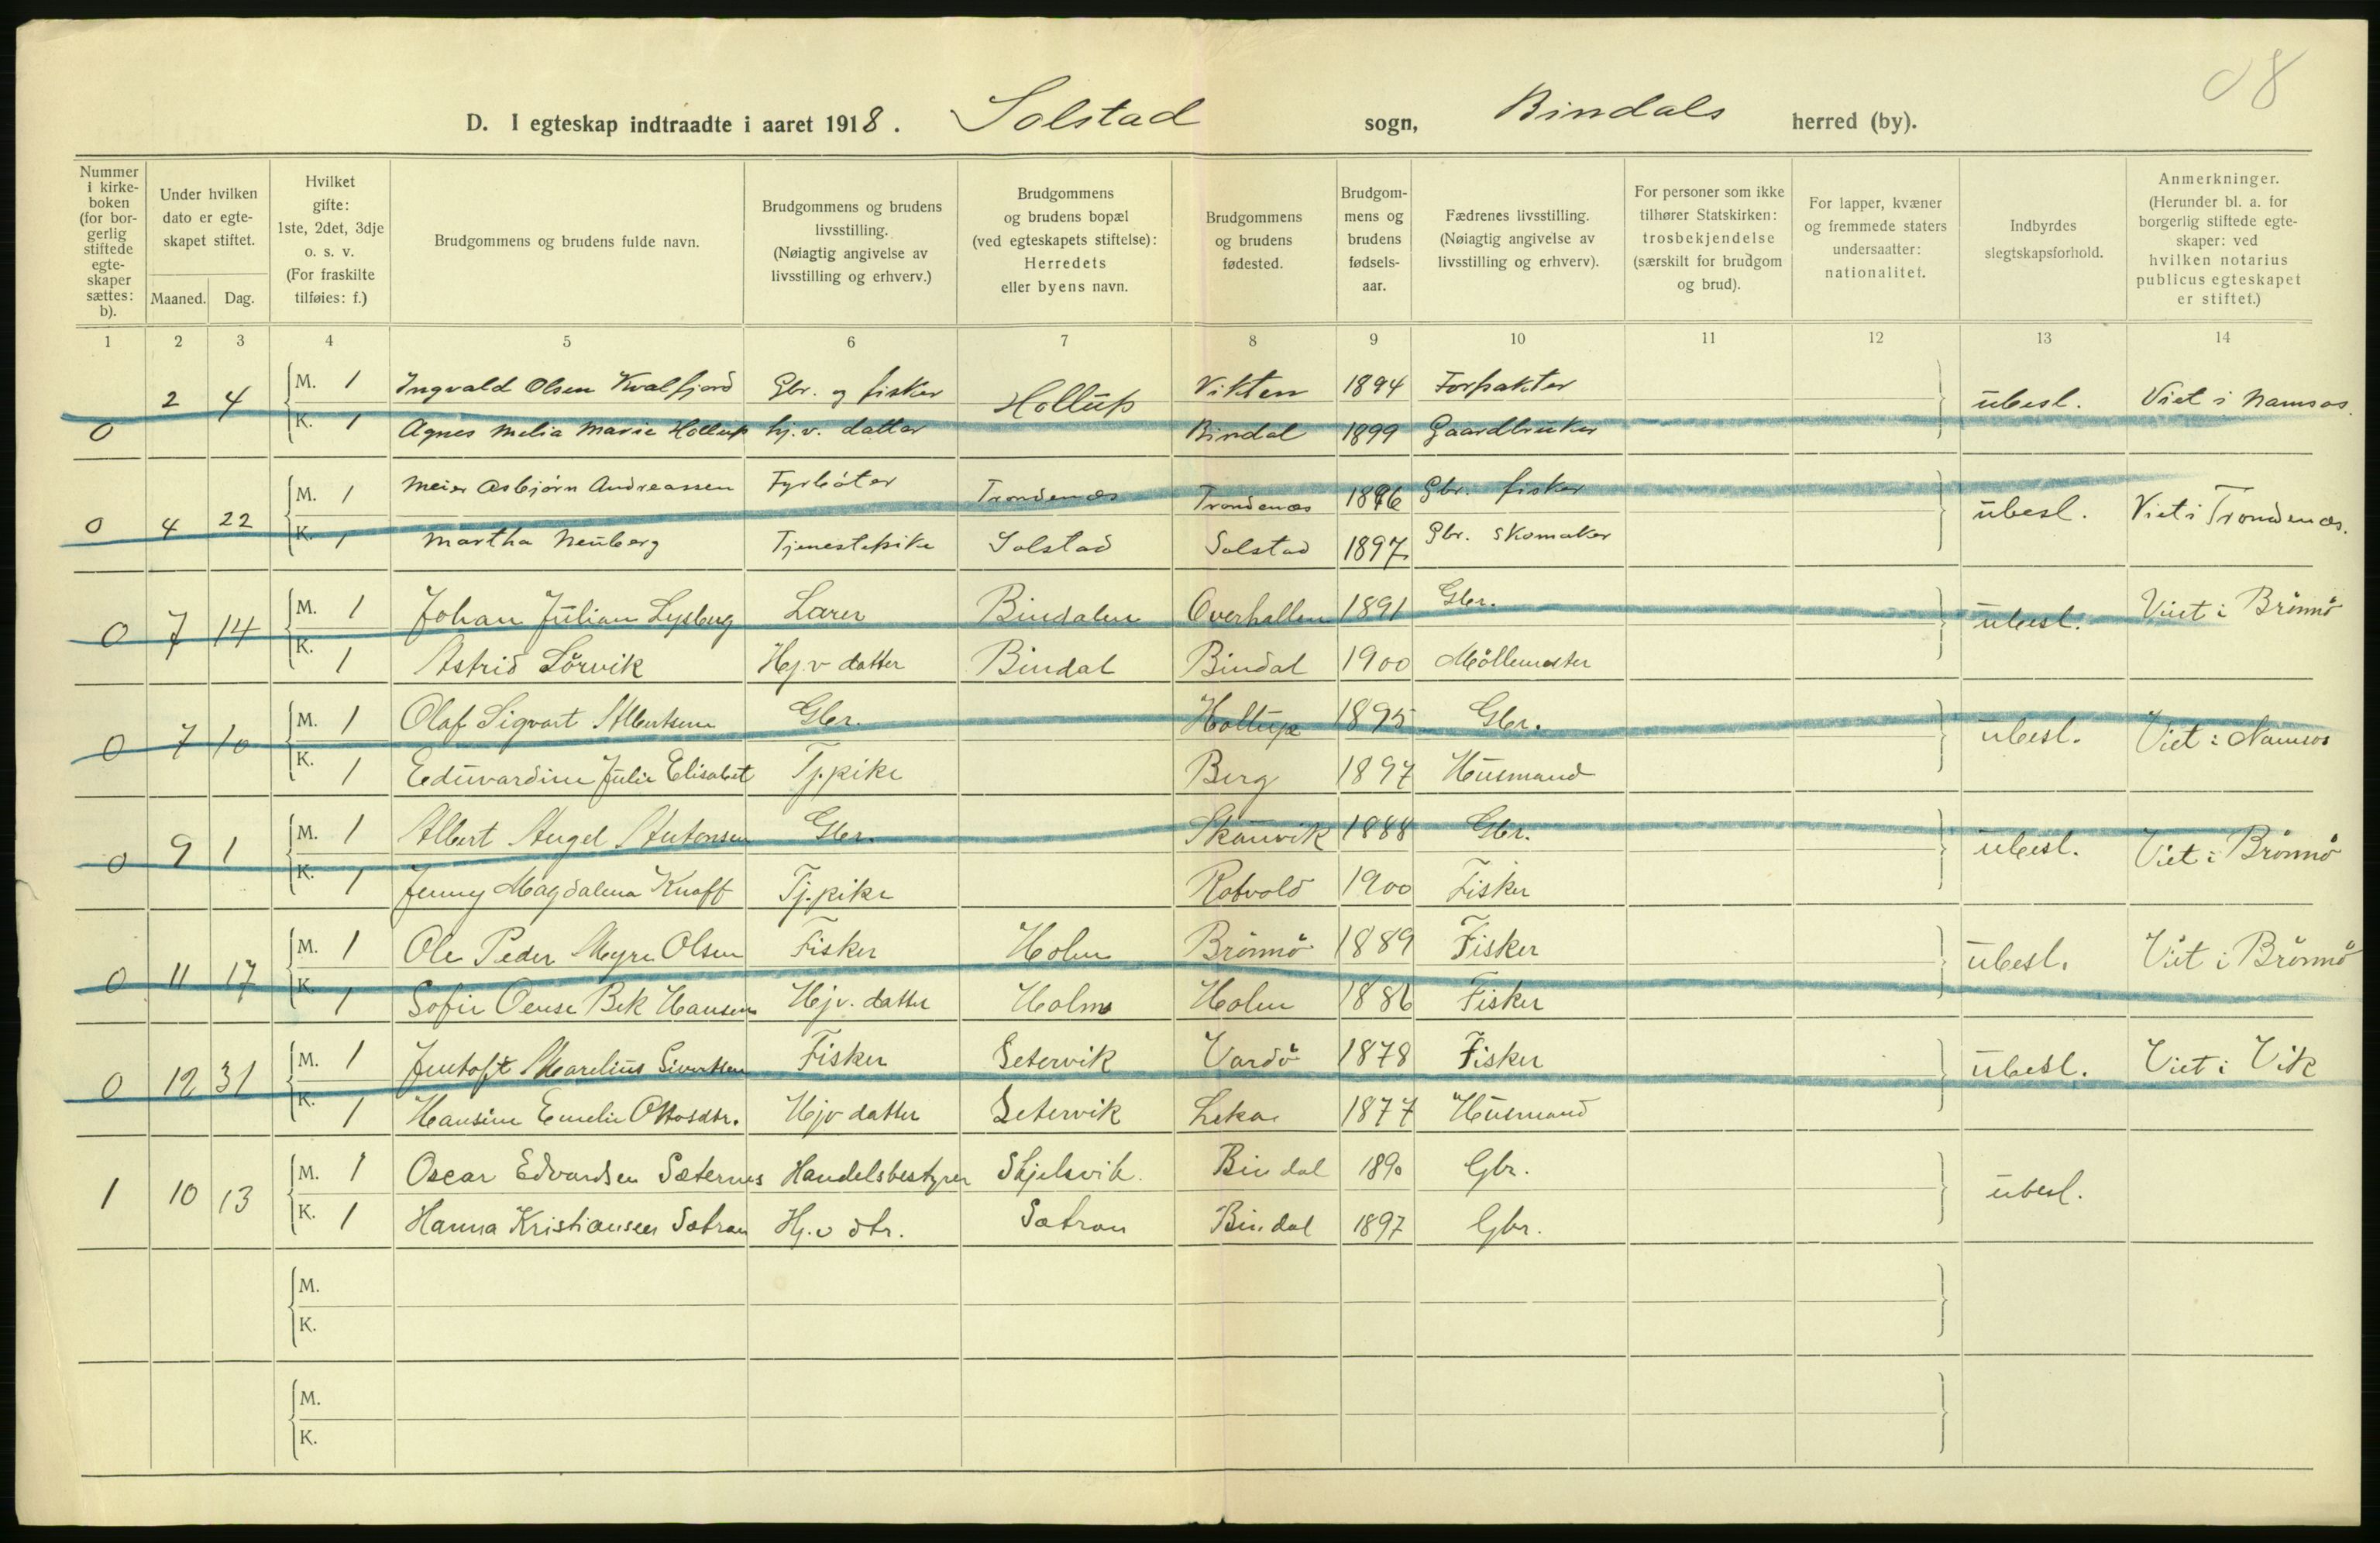 08
D. I egteskap indtraadte i aaret 1918. Solstad sogn, Bindals herred (by).
Nummer i kirkeboken (for borgerlig stiftede egteskaper sættes: b).
Under hvilken dato er egteskapet stiftet.
Maaned. Dag.
Hvilket gifte: 1ste, 2det, 3dje o. s. v. (For fraskilte tilføies: f.)
Brudgommens og brudens fulde navn.
Brudgommens og brudens livsstilling. (Nøiagtig angivelse av livsstilling og erhverv.)
Brudgommens og brudens bopæl (ved egteskapets stiftelse): Herredets eller byens navn.
Brudgommens og brudens fødested.
Brudgommens og brudens fødselsaar.
Fædrenes livsstilling. (Nøiagtig angivelse av livsstilling og erhverv).
For personer som ikke tilhører Statskirken: trosbekjendelse (særskilt for brudgom og brud).
For lapper, kvæner og fremmede staters undersaatter: nationalitet.
Indbyrdes slegtskapsforhold.
Anmerkninger. (Herunder bl. a. for borgerlig stiftede egteskaper: ved hvilken notarius publicus egteskapet er stiftet.)
1 2 3 4 5 6 7 8 9 10 11 12 13 14
0 2 4 M. 1 Ingvald Olsen Kvalfjord Gbr. og fisker Hollup Vikten 1894 Forpakter ubesl. Viet i Namsos.
K. 1 Agnes Melia Marie Hollup hj.v. datter Bindal 1899 Gaardbruker
0 4 22 M. 1 Meier Asbjørn Andreassen Fyrbøter Trondenæs Trondenæs 1896 Gbr. fisker ubesl. Viet i Trondenæs.
K. 1 Martha Neuberg Tjenestepike Solstad Solstad 1897 Gbr. Skomaker
0 7 14 M. 1 Johan Julian Lysberg Lærer Bindalen Overhallen 1891 Gbr. ubesl. Viet i Brönnö
K. 1 Astrid Lörvik Hj.v datter Bindal Bindal 1900 Möllemester
0 7 10 M. 1 Olaf Sigvart Albertsen Gbr. Holtup 1895 Gbr. ubesl. Viet i Namsos
K. 1 Eduvardine Julie Elisabet Tj.pike Berg 1897 Husmand
0 9 1 M. 1 Albert Angel Antonsen Gbr. Skauvik 1888 Gbr. ubesl. Viet i Brönnö
K. 1 Jenny Magdalena Knoff Tj.pike Rotvold 1900 Fisker
0 11 17 M. 1 Ole Peder Meyre Olsen Fisker Holm Brönnö 1889 Fisker ubesl. Viet i Brönnö
K. 1 Sofie Bek Hansen Hjv. datter Holm Holm 1886 Fisker
0 12 31 M. 1 Jentoft Marelius Sivertsen Fisker Setervik Vardö 1878 Fisker ubesl. Viet i Vik
K. 1 Hansine Emelie Ottosdtr. Hjv datter Setervik Leka 1877 Husmand
1 10 13 M. 1 Oscar Edvardsen Sæternes Handelsbestyrer Skjelsvik. Bindal 1890 Gbr. ubesl.
K. 1 Hanna Kristiansen Satran Hj.v dtr. Satran Bindal 1897 Gbr.
M.
K.
M.
K.